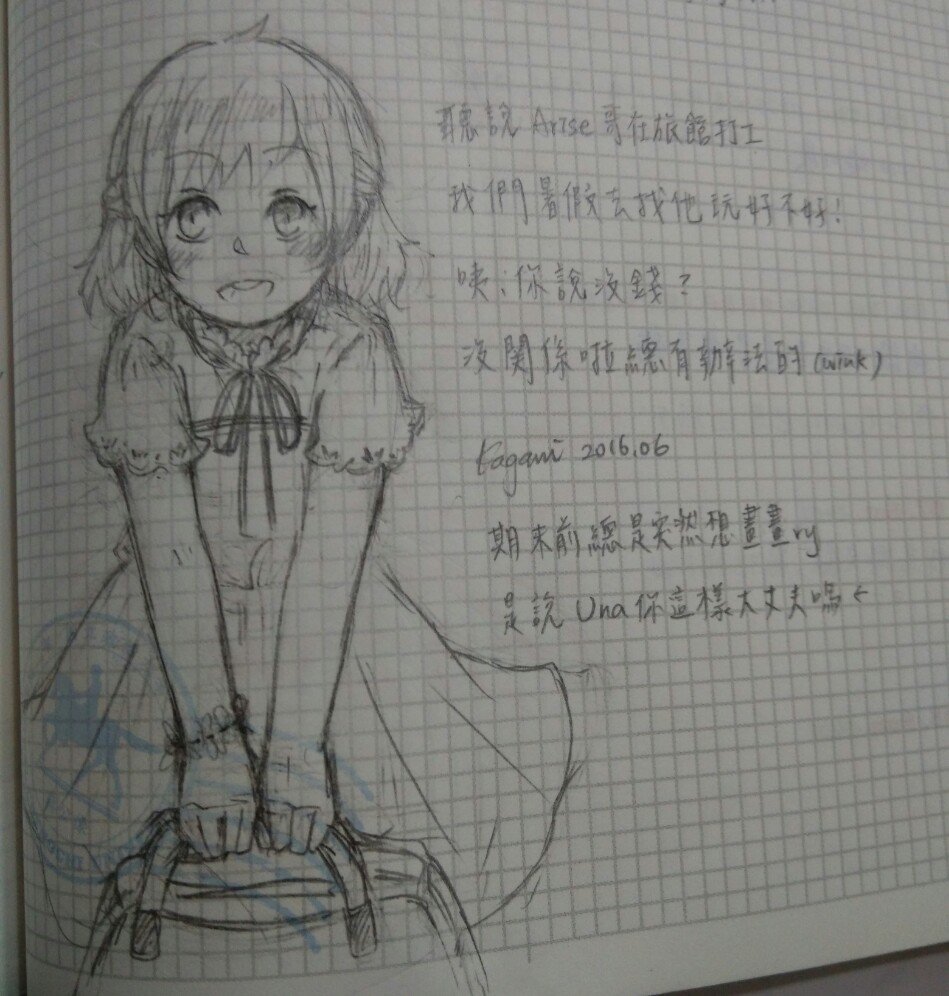 聽說 Arise哥在旅館打工
我們暑假去找他玩好不好!
咦,你說沒錢?
沒關係啦總有辦法的(wink)
Kagami 2016.06
期末前總是突然想畫畫ry
是說 Una你這樣大丈夫嗎←